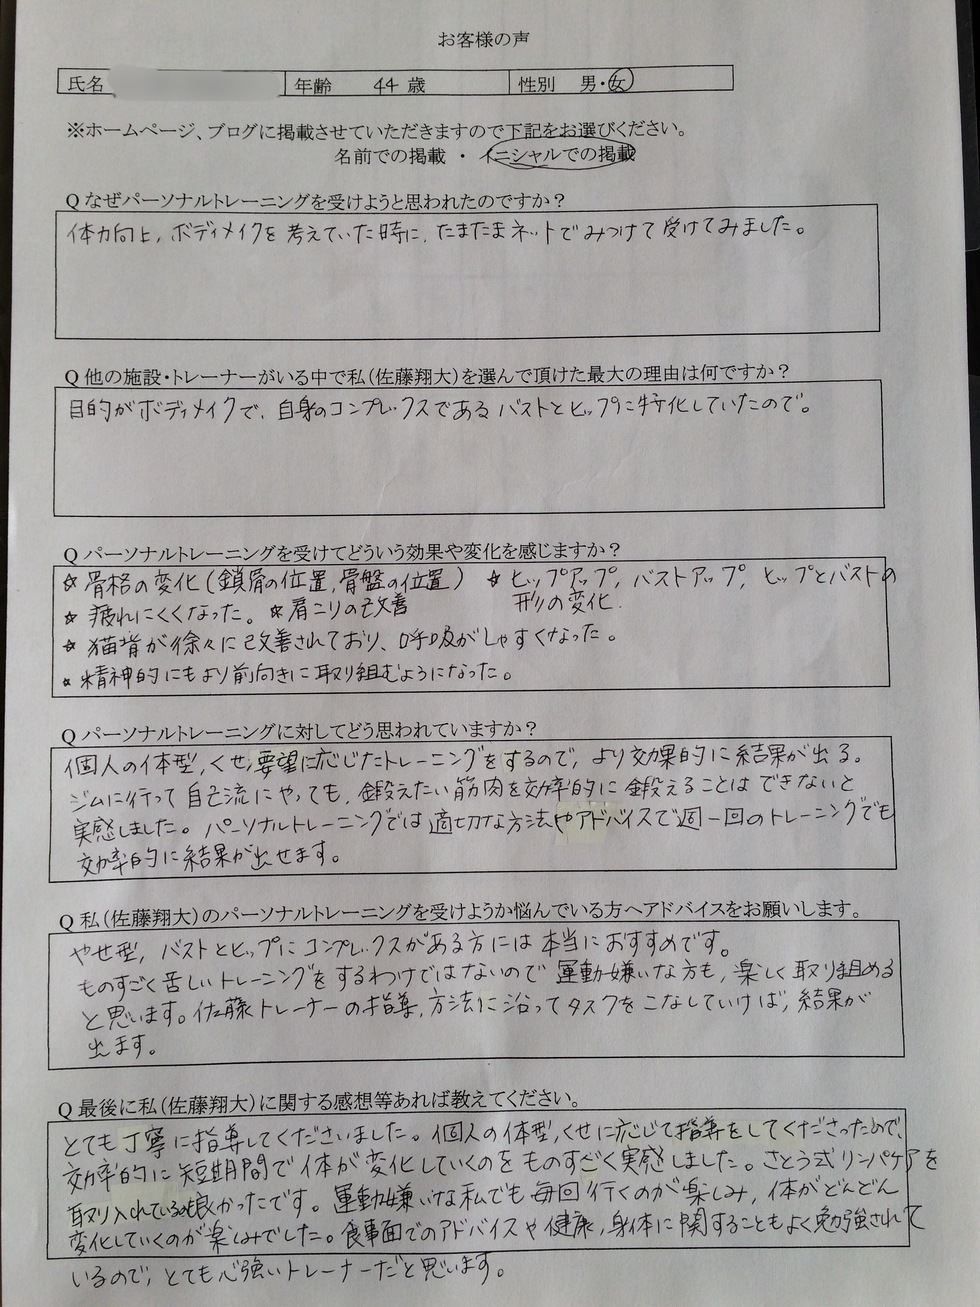 お客様の声
氏名 年齢 44 歳 性別 男・女
※ホームページ、ブログに掲載させていただきますので下記をお選びください。
名前での掲載 ・ イニシャルでの掲載
Q なぜパーソナルトレーニングを受けようと思われたのですか？
体力向上, ボディメイクを考えていた時に, たまたまネットでみつけて受けてみました。
Q 他の施設・トレーナーがいる中で私(佐藤翔大)を選んで頂けた最大の理由は何ですか？
目的がボディメイクで, 自身のコンプレックスであるバストとヒップに特化していたので。
Q パーソナルトレーニングを受けてどういう効果や変化を感じますか？
☆ 骨格の変化(鎖骨の位置, 骨盤の位置) ☆ ヒップアップ, バストアップ, ヒップとバストの
形の変化.
☆ 疲れにくくなった。 ☆肩こりの改善
☆ 猫背が徐々に改善されており、呼吸がしやすくなった。
☆ 精神的にもより前向きに取り組むようになった。
Q パーソナルトレーニングに対してどう思われていますか？
個人の体型, くせ, 要望に応じたトレーニングをするので, より効果的に結果が出る。
ジムに行って自己流にやっても, 鍛えたい筋肉を効率的に鍛えることはできないと
実感しました。パーソナルトレーニングでは適切な方法やアドバイスで週一回のトレーニングでも
効率的に結果が出せます。
Q 私(佐藤翔大)のパーソナルトレーニングを受けようか悩んでいる方へアドバイスをお願いします。
やせ型, バストとヒップにコンプレックスがある方には本当におすすめです。
ものすごく苦しいトレーニングをするわけではないので運動嫌いな方も, 楽しく取り組める
と思います。佐藤トレーナーの指導, 方法に沿ってタスクをこなしていけば, 結果が
出ます。
Q 最後に私(佐藤翔大)に関する感想等あれば教えてください。
とても丁寧に指導してくださいました。個人の体型, くせに応じて指導をしてくださったので,
効率的に短期間で体が変化していくのをものすごく実感しました。さとう式リンパケアを
取り入れているのも良かったです。運動嫌いな私でも毎回行くのが楽しみ, 体がどんどん
変化していくのが楽しみでした。食事面でのアドバイスや健康, 身体に関することもよく勉強されて
いるので, とても心強いトレーナーだと思います。